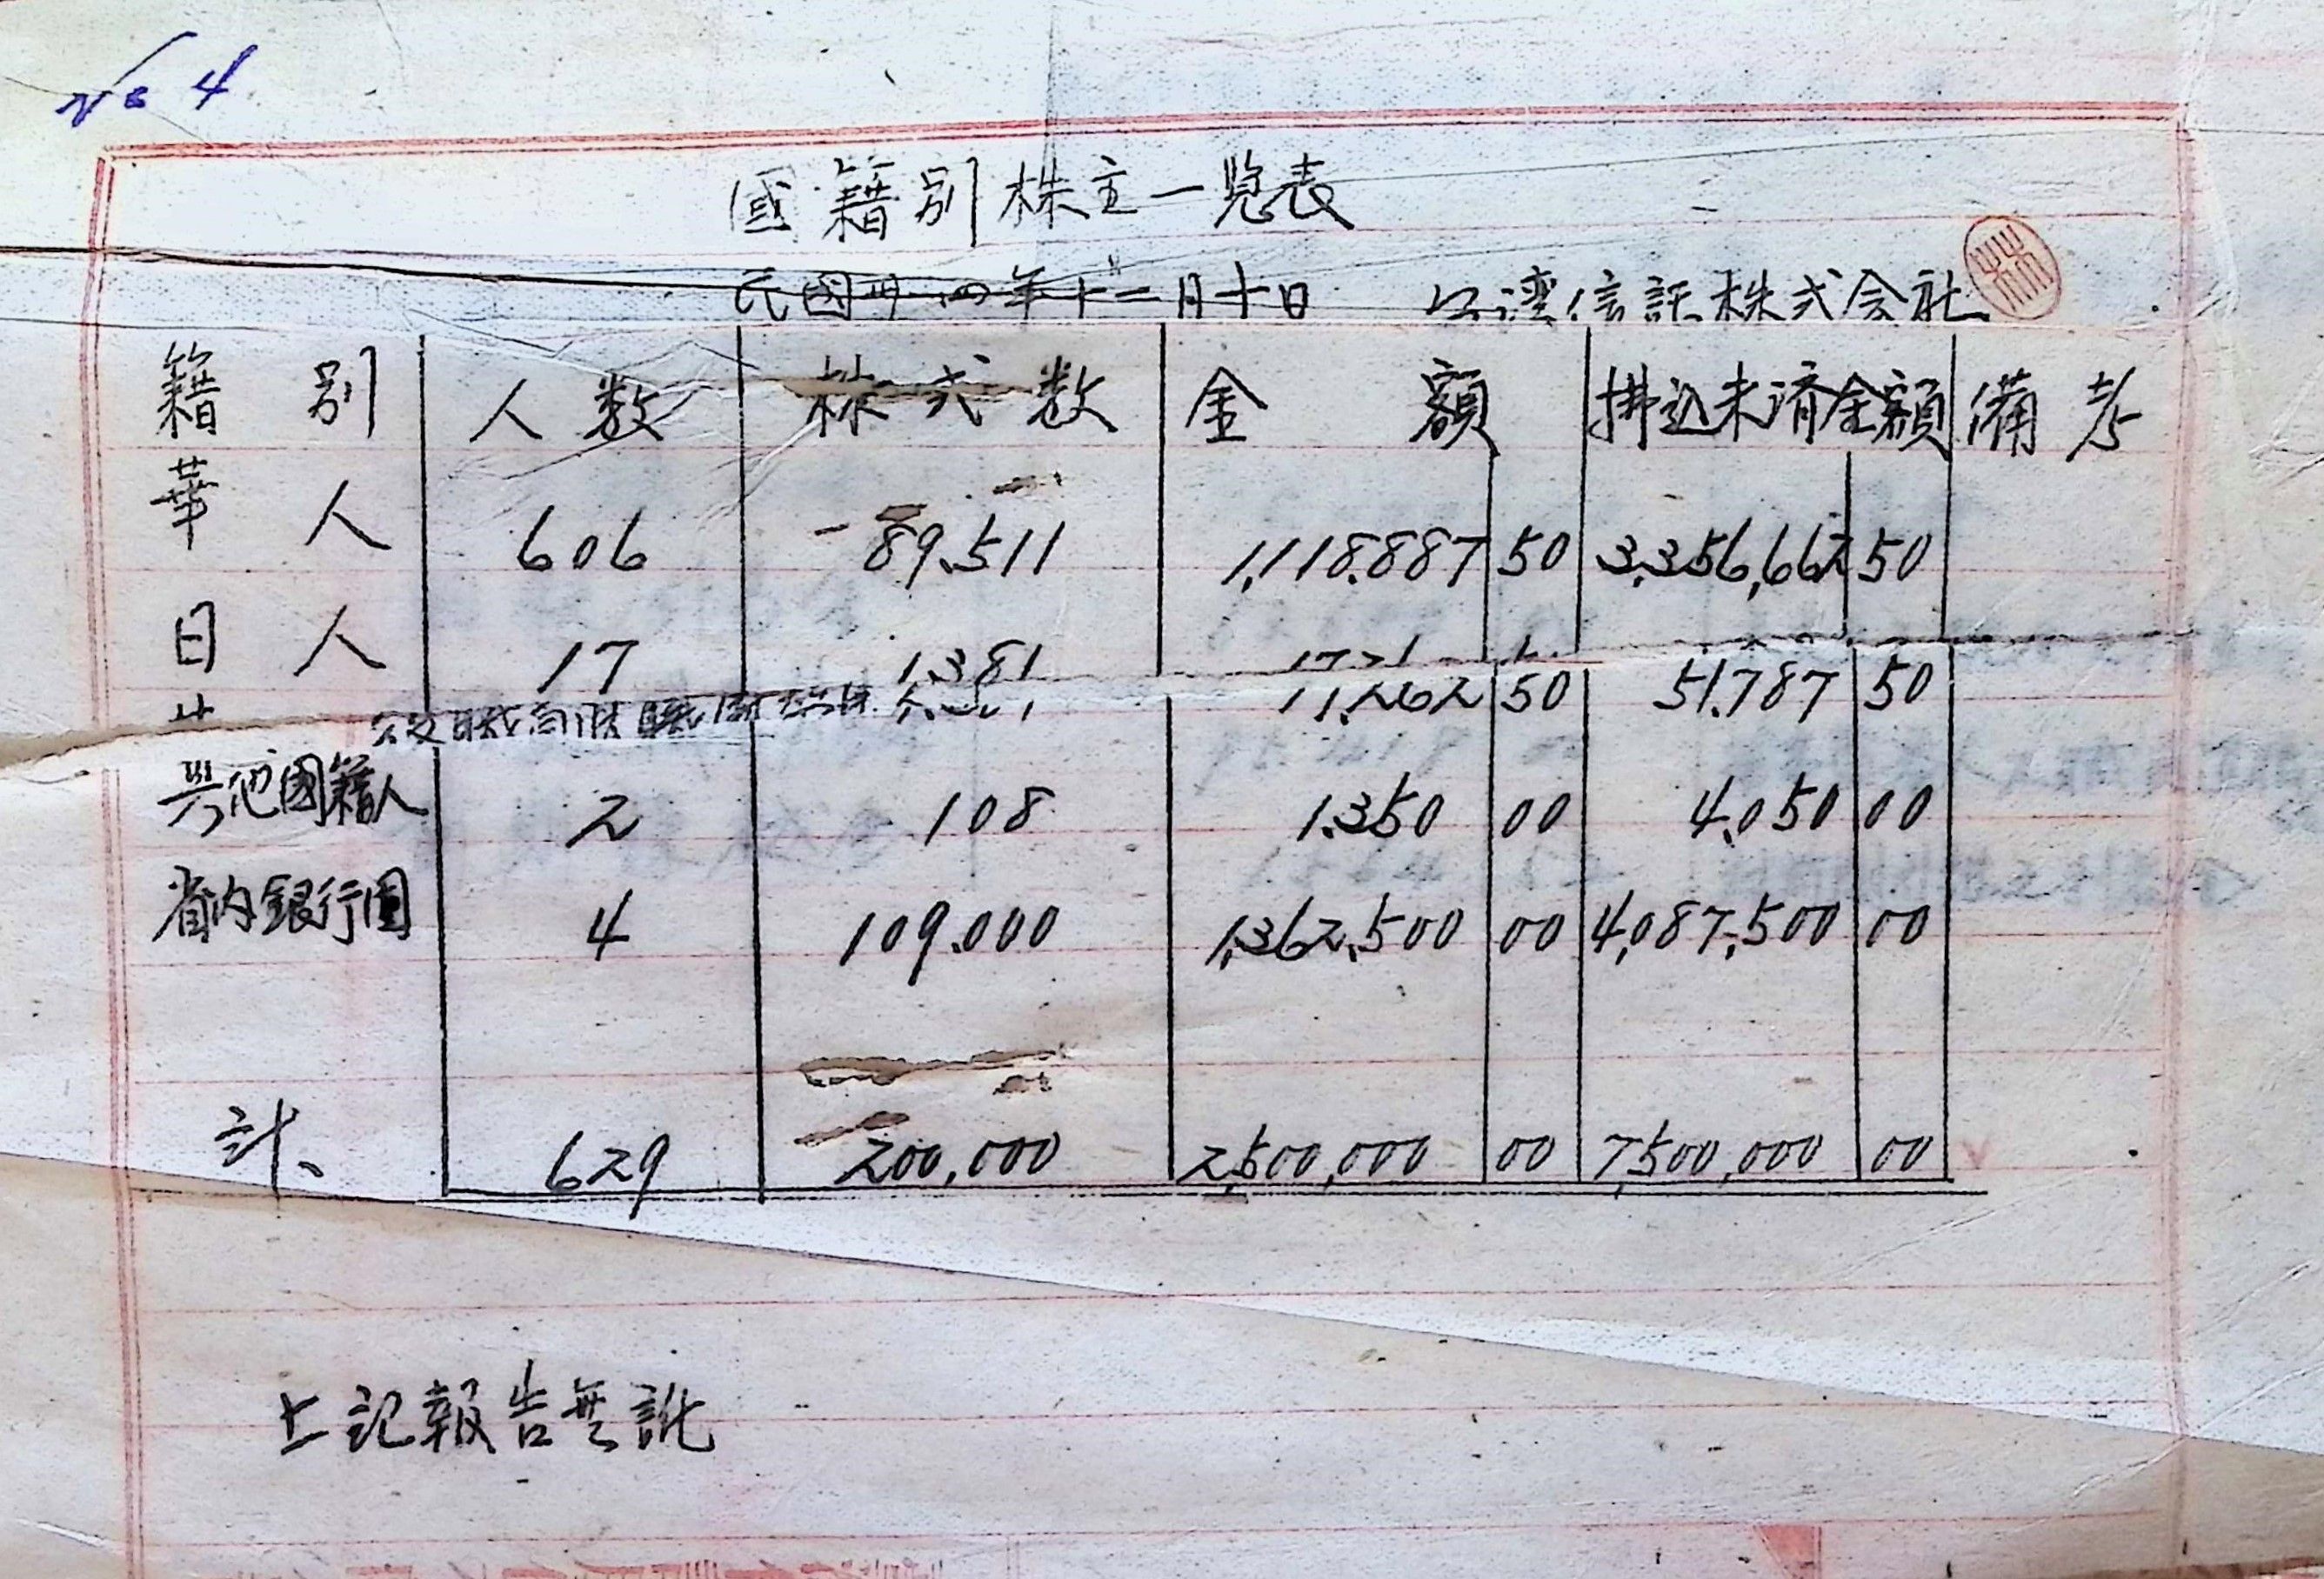 No 4
國籍別株主一覧表
民國卅四年十二月十日 台湾信託株式会社
籍別 人数 株式数 金額 拂込未済金額 備考
華人 606 89.511 1,118.887 50 3,356,662 50
日人 17 1.381 50 51.787 50
其他國籍人 2 108 1.350 00 4.050 00
省内銀行團 4 109.000 1,362.500 00 4,087,500 00
計 629 200,000 2,500,000 00 7,500,000 00
上記報告無訛